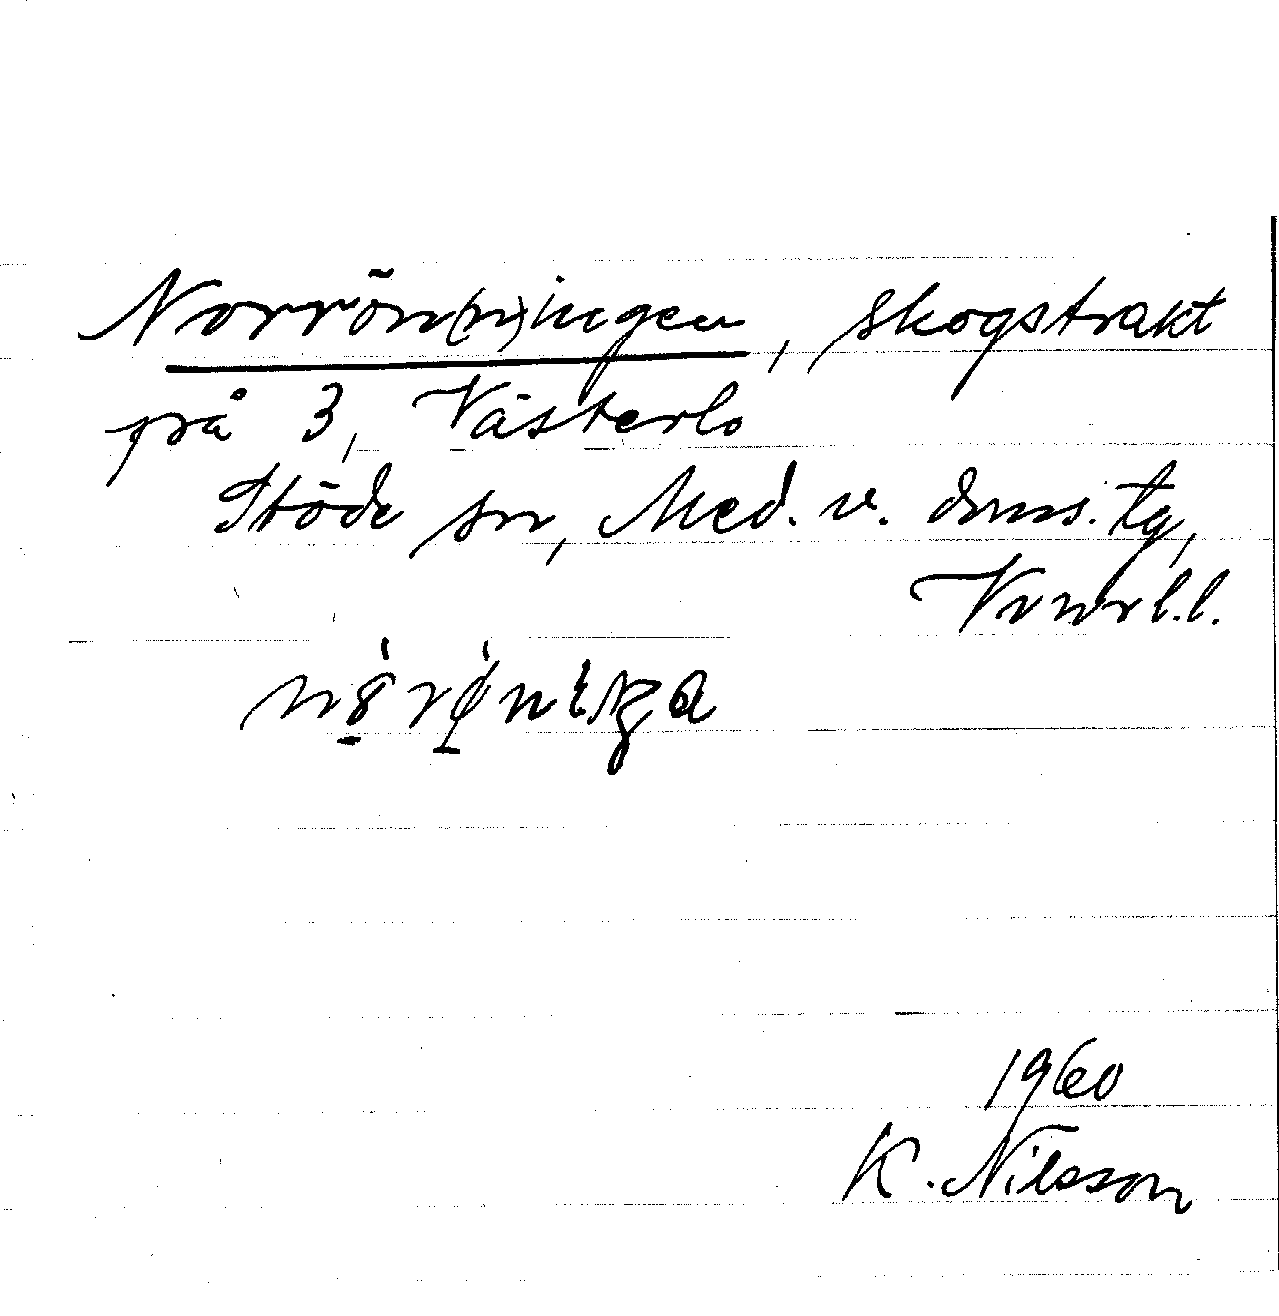 Norrön(n)ingen, skogstrakt
på 3, Västerlo
Stöde sn, Med. v. doms. tg,
Vnrl.l.
1960
K. Nilsson